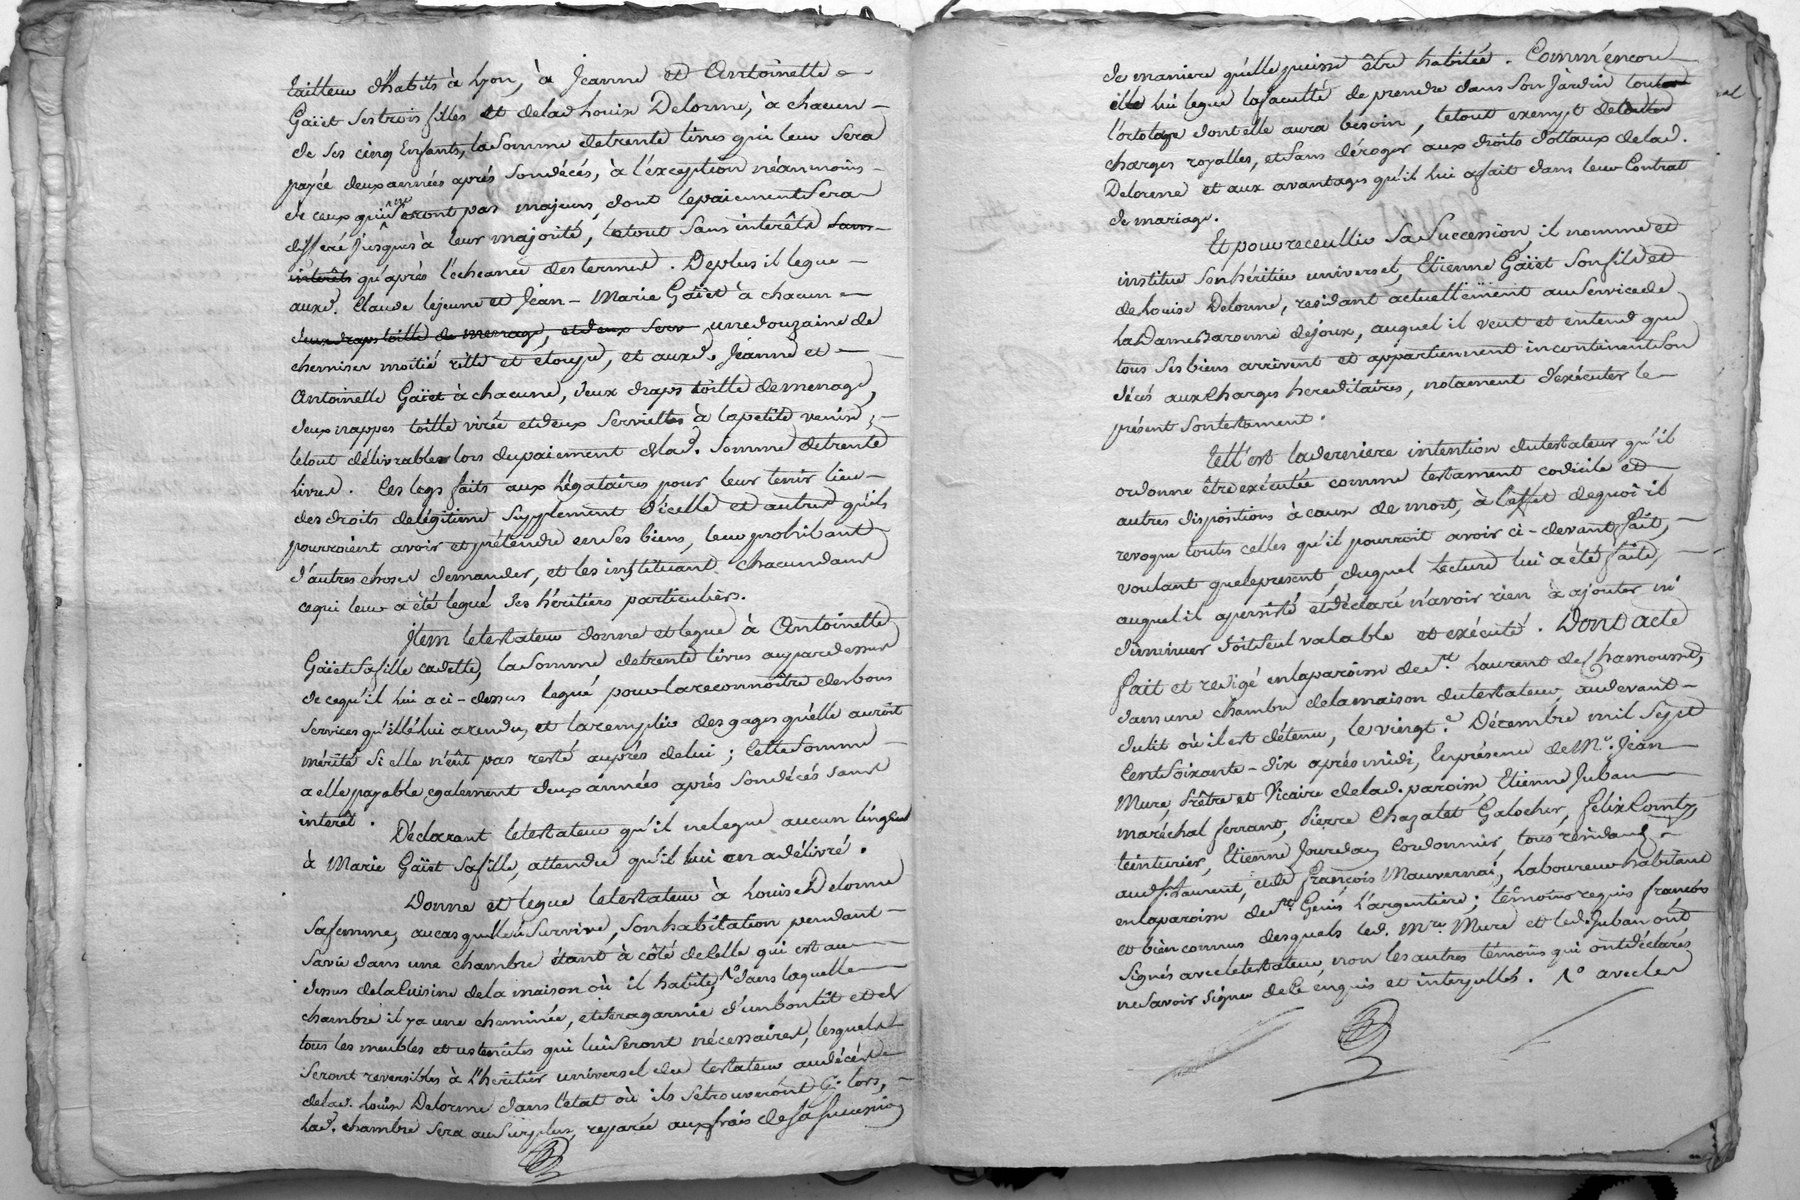 tailleur d'habits à Lyon, à Jeanne et Antoinette
Gaïet ses trois filles et de lad. Louise Delorme, à chacun
de ses cinq Enfants, la somme de trente livres qui leur sera
payée deux années après son décés, à l'éxception néanmoins
de ceux qui ne seront pas majeurs, dont le paiement sera
differé jusques à leur majorité, le tout sans interêts sans
interêts qu'après l'écheance des termes. De plus il legue
auxd. Claude lejeune et Jean-Marie Gaïet à chacun
deux draps toille de menage, et deux serv une douzaine de
chemises moitié ritte et etoupe, et auxd. Jeanne et
Antoinette Gaïet à chacune, deux draps toille de menage,
deux nappes toille virée et deux serviettes à la petite venise,
le tout délivrables lors du paiement de lad. somme de trente
livres. Ces legs faits aux Légataires pour leur tenir lieu
des droits de légitime supplement d'icelle et autres qu'ils
pourroient avoir et prétendre en ses biens, leur prohibant
d'autres choses demander, et les instituant chacun dans
ce qui leur a été legué ses héritiers particuliers.
Item le testateur donne et legue à Antoinette
Gaïet sa fille cadette, la somme de trente livres au par dessus
de ce qu'il lui a ci-dessus legué pour la reconnoître des bons
services qu'elle lui a rendu, et la remplir des gages qu'elle auroit
mérité si elle n'eût pas resté auprés de lui; cette somme
a elle payable egalement deux années aprés son décés sans
interêt.
Déclarant le testateur qu'il ne legue aucun linge
à Marie Gaïet sa fille, attendu qu'il lui en a délivré.
Donne et legue le testateur à Louise Delorme
sa femme, au cas qu'elle lui survive, son habitation pendant
sa vie dans une chambre étant à côté de celle qui est au
dessus de la Cuisine de la maison où il habite, 1° dans laquelle
chambre il y a une cheminée, et sera garnie d'un bon lit et de
tous les meubles et ustenciles qui lui seront nécessaires, lesquels
seront reversibles à l'héritier universel du testateur au décés
de lad. Louise Delorme dans l'état où ils se trouveront lors,
Lad. chambre sera au surplus, reparée aux frais de sa succession
de maniere qu'elle puisse être habitée. Comm'encore
il lui legue la faculté de prendre dans son Jardin
l'ortolage dont elle aura besoin, le tout exempt de toutes
charges royalles, et sans déroger aux droits dottaux de lad.
Delorme et aux avantages qu'il lui a fait dans leur Contrat
de mariage.
Et pour receullir sa succession, il nomme et
institue son héritier universel, Etienne Gaïet son fils et
de Louise Delorme, residant actuellement au service de
La Dame Baronne de joux, auquel il veut et entend que
tous ses biens arrivent et appartiennent incontinent son
décés aux charges hereditaires, notament d'exécuter le
présent son testament.
Tell'est la derniere intention du testateur qu'il
ordonne être exécutée comme testament codicile et
autres dispositions à cause de mort, à l'effet de quoi il
revoque toutes celles qu'il pourroit avoir ci-devant fait,
voulant que le present, duquel lecture lui a été faite,
auquel il a persisté et déclaré n'avoir rien à ajouter ni
diminuer soit seul valable et exécuté. Dont acte
fait et redigé en la paroisse de St. Laurent de Chamousset,
dans une chambre de la maison du testateur, au devant
du lit où il est détenu, le vingt. Décembre mil sept
Cent soixante-dix aprés midi, En présence de Mr. Jean
Mure Prêtre et Vicaire de lad. paroisse, Etienne Juban
maréchal ferrant, Pierre Chazalet Galocher, félix Comby,
teinturier, Etienne Jourdan cordonnier, tous residants
aud. St. Laurent, et de françois Mauvernai, Laboureur habitant
en la paroisse de St. Genis l'argentiere; témoins requis
et bien connus desquels led. Mre. Mure et led. Juban ont
signés avec le testateur, non les autres témoins qui ont déclarés
ne savoir signer de ce enquis et interpellés. 1° avec les